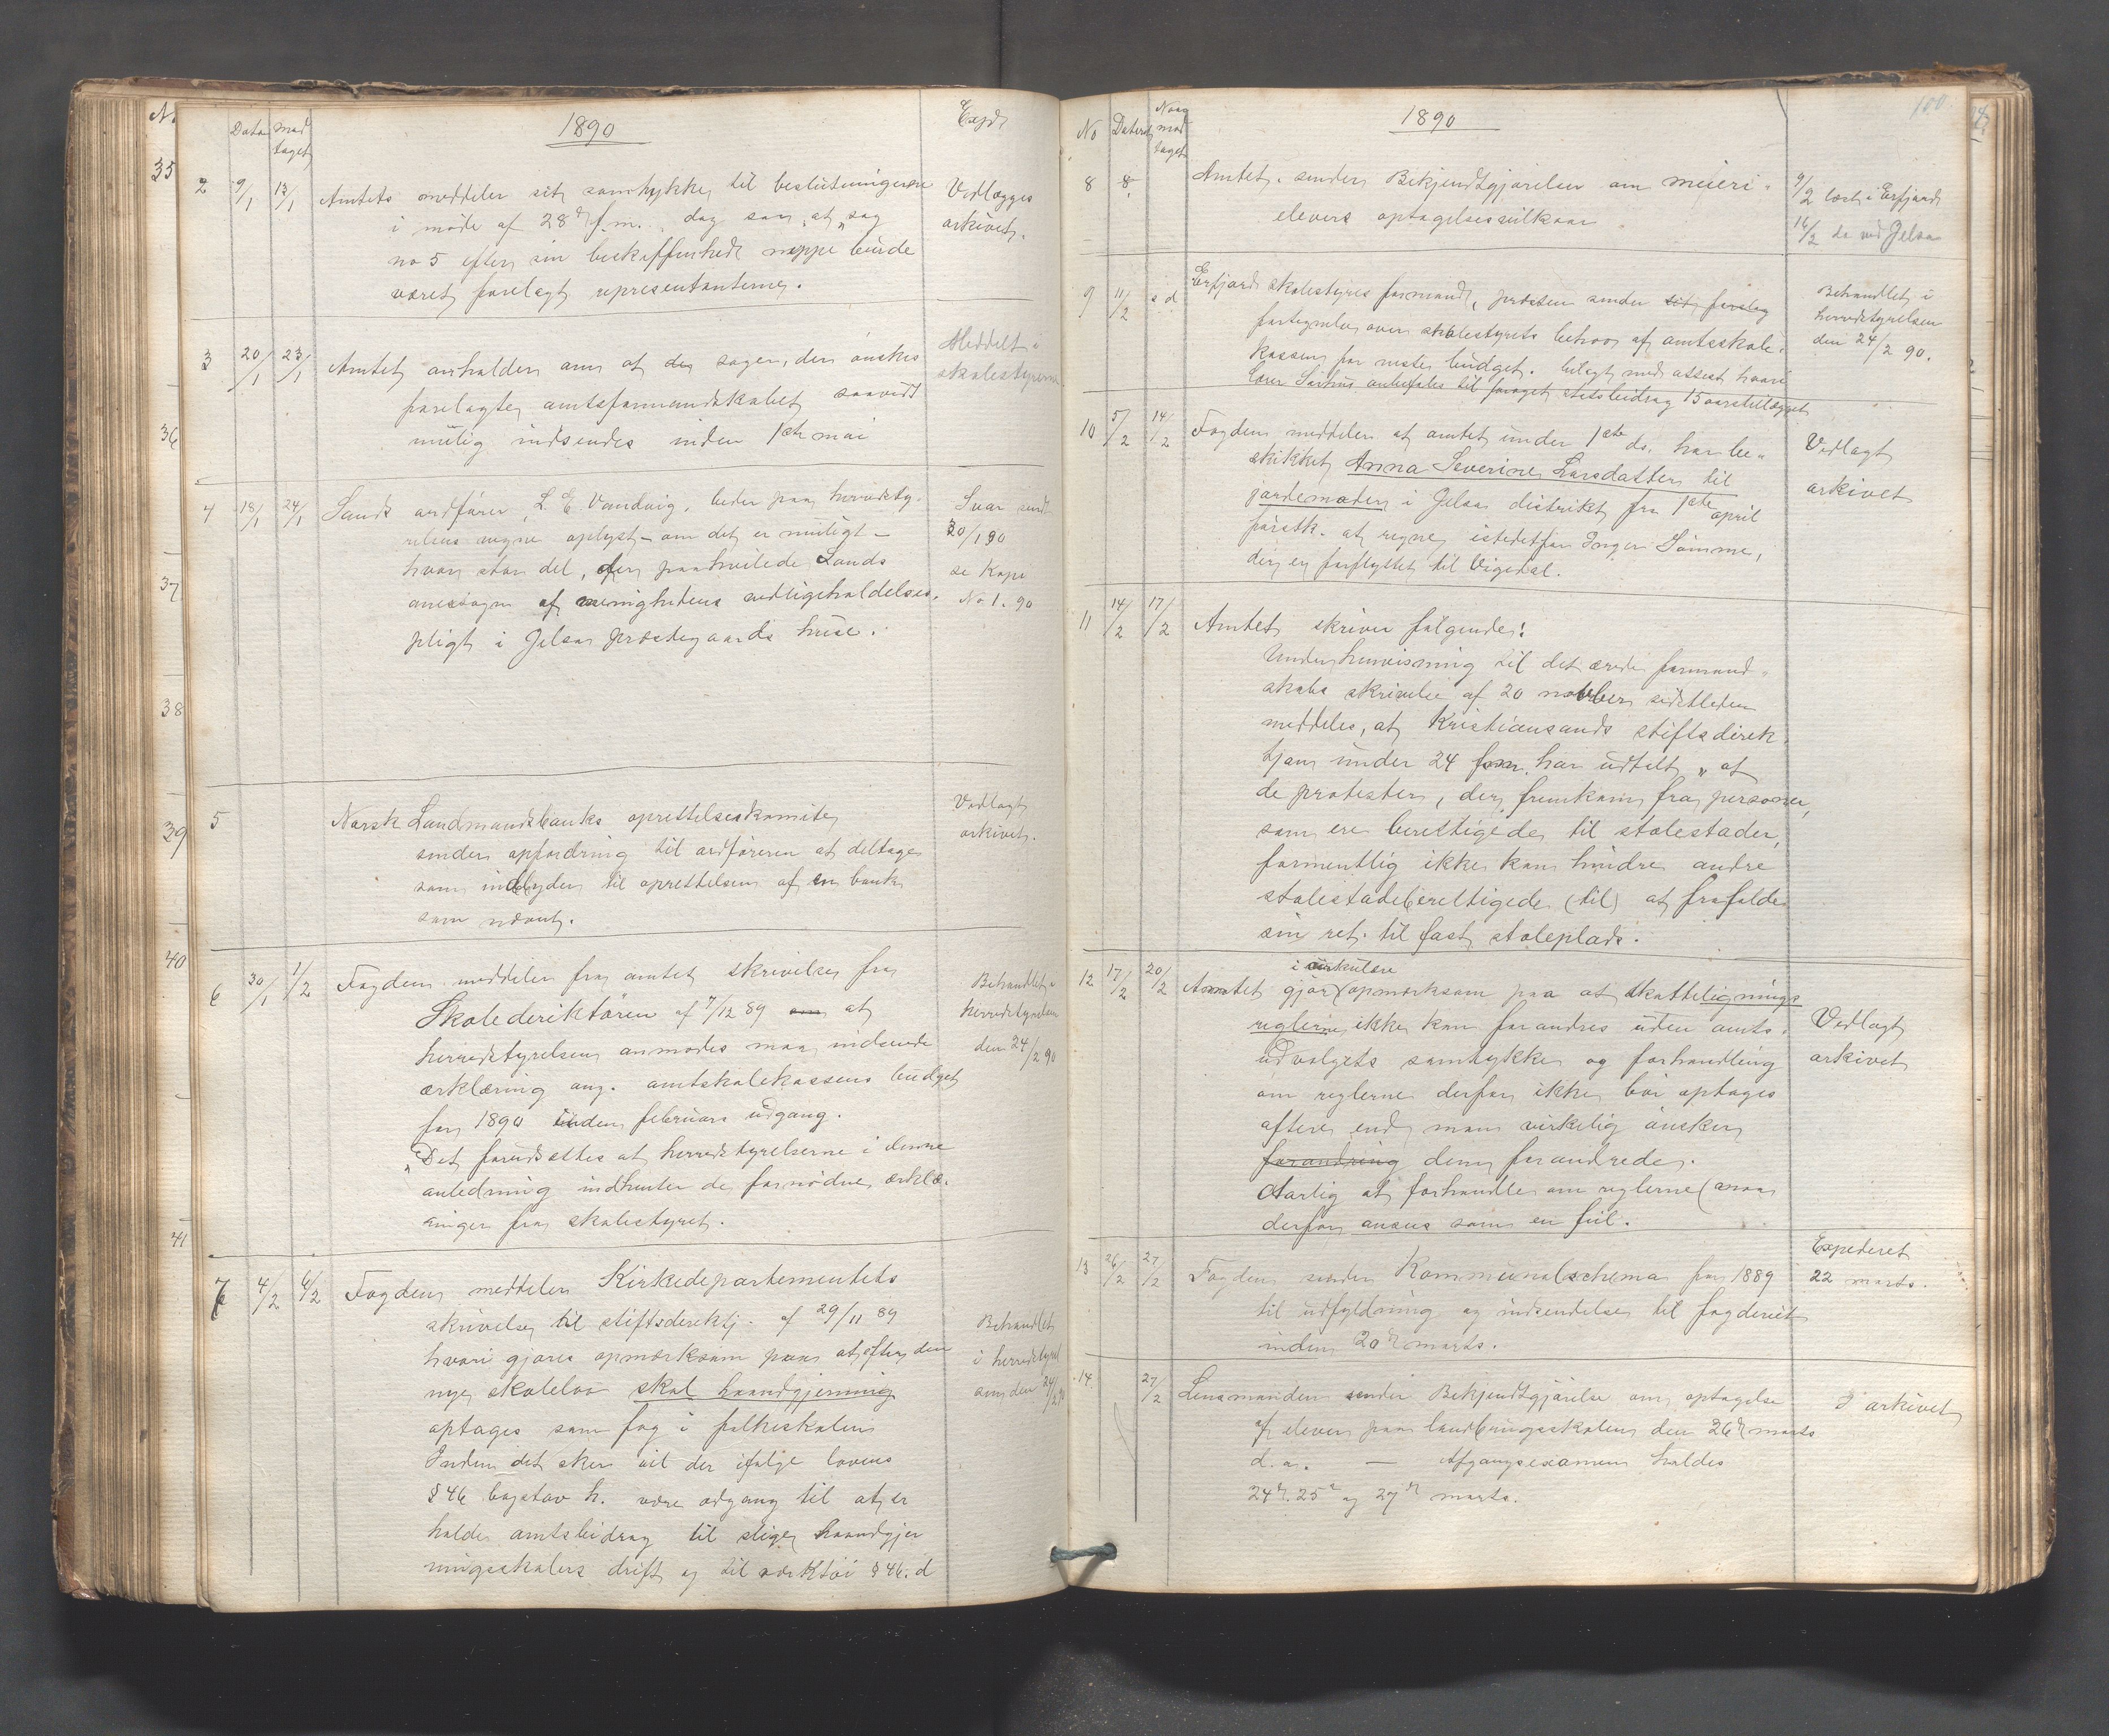 1890
Dato
Mod
taget
Expd
2 9/1 13/1 Amtets meddeler sit samtykke til beslutningerne
i møde af 28d f.m. dog saa, at sag
no 5 efter sin beskaffenhed neppe burde
været forelagt repræsentanterne.
Vedlægges
arkivet.
3 20/1 23/1 Amtet anholder om at de sager, der ønskes
forelagte amtsformandskabet saavidt
mulig indsendes inden 1ste mai
Meddelt
skolestyrerne
4 18/1 24/1 Sands ordfører, L. E. Vandvig, beder paa herredsty-
relsens vegne oplyst – om det er muligt –
hvor stor del, der paahvilede Sands
annexsogn af menighedens vedligeholdelses-
pligt i Jelsa præstegaards huse.
Svar sendt
30/1 90
se Kopi
No 1. 90
5 Norsk Landmandsbanks oprettelseskomite
sender opfordring til ordføreren at deltage
som indbyder til oprettelsen af en bank
som nævnt.
Vedlagt
arkivet.
6 30/1 1/2 Fogden meddeler fra amtet skrivelse fra
Skoledirektøren af 7/12 89 om at
herredstyrelsen anmodes maa indsende
erklæring ang. amtskolekassens budget
for 1890 inden februars udgang.
"Det forudsættes at herredstyrelserne i denne
anledning indhenter de fornødne erklæ-
ringer fra skolestyret.
Behandlet i
herredstyrelsen
den 24/2 90
7 4/2 6/2 Fogden meddeler Kirkedepartementets
skrivelse til stiftsdirektj. af 29/11 89
hvori gjøres opmærksom paa at efter den
nye skolelov skal haandgjerning
optages som fag i folkeskolen
Inden det sker vil der ifølge lovens
§ 46 bogstav h. være adgang til at er
holde amtsbidrag til slige haandgjer
ningsskolers drift og til værktøi § 46. d
Behandlet
i herredstyrel
sen den 24/2 90
1890
100.
No
Dateret
Naar
mod
taget
8 8 Amtet sender Bekjendtgjørelse om meieri-
elevers optagelsesvilkaar
9/2 læst i Erfjord
16/2 do ved Jelsa
9 11/2 s d Erfjords skolestyres formand, præsten sender sit forslag
fortegnelse over skolestyrets behov af amtsskole-
kassen for neste budget. bilagt med attest hvori
lærer Sørhus anbefales til forøget statsbidrag 15 aarstillægget
Behandlet i
herredstyrelsen
den 24/2 90.
10 5/2 14/2 Fogden meddeler at amtet under 1ste ds. har be-
skikket Anna Severine Larsdatter til
jordemoder i Jelsa distrikt fra 1ste april
førstk. at regne istedetfor Inger Sømme,
der er forflyttet til Vigedal.
Vedlagt
arkivet
11 14/2 17/2 Amtet skriver følgende:
Under henvisning til det ærede formand-
skabs skrivelse af 20 november sidstleden
meddeles, at Kristiansands stiftsdirek-
tjon under 24 f.m. har udtalt "at
de protester, der fremkom fra personer,
som ere berettigede til stolestader,
formentlig ikke kan hindre andre
stolestadeberettigede (til) at frafalde
sin ret til fast stoleplads.
12 17/2 20/2 i cirkulære
Amtet gjør opmerksom paa at skatteligning-
reglerne ikke kan forandres uden amts-
udvalgets samtykke og forhandling
om reglerne derfor ikke bør optages
oftere end man virkelig ønsker
forandring dem forandrede.
Aarlig at forhandle om reglerne maa
derfor ansees som en feil.
Vedlagt
arkivet
13 26/2 27/2 Fogden sender Kommunalschema for 1889
til udfyldning og indsendelse til fogderiet
inden 20d marts.
Expederet
22 marts.
14 27/2 Lensmanden sender Bekjendtgjørelse om optagelse
af elever paa landbrugsskolen den 26d marts
d. a. — Afgangsexamen holdes
24d. 25d og 27d marts.
I arkivet
35
36
37
38
39
40
41